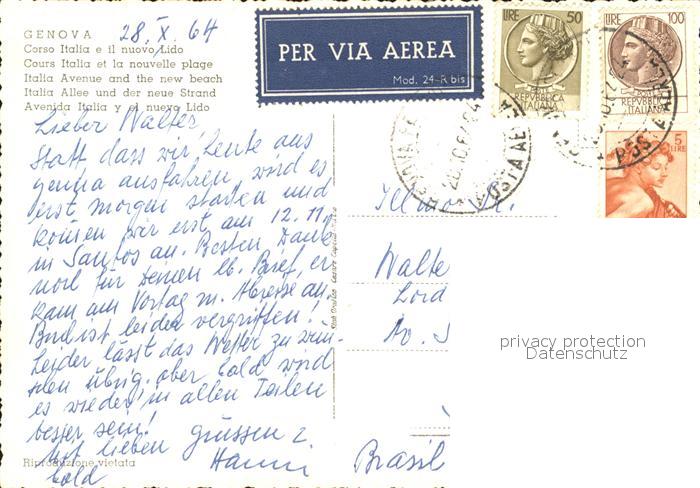 GENOVA 28. X. 64
Corso Italia e il nuovo Lido
Cours Italia et la nouvelle plage
Italia Avenue and the new beach
Italia Allee und der neue Strand
Avenida Italia y el nuevo Lido
PER VIA AEREA
Mod. 24-R bis
LIRE 50
REPVBBLICA
ITALIANA
LIRE 100
REPVBBLICA
ITALIANA
5
LIRE
POSTA AEREA
Lieber Walter,
Statt dass wir heute aus
genua ausfahren, wird es
erst morgen starten und
kommen wir erst am 12. 11.
in Santos an. Besten Dank
noch für Deinen lb. Brief, er
kam am Vortag m. Abreise an.
Bud ist leider vergriffen!
Leider lässt das Wetter zu wün-
schen übrig. aber bald wird
es wieder in allen Teilen
besser sein!
Mit lieben grüssen z.
bald Hanni
Walte
Lord
Av. J
Brasil
Riproduzione vietata
privacy protection
Datenschutz